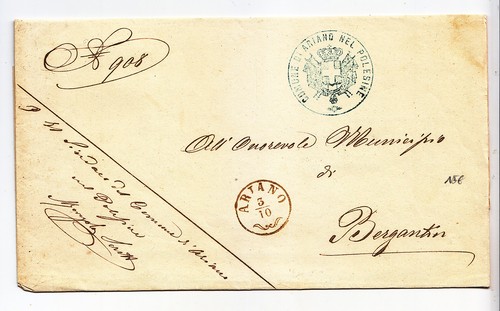 N 908
COMUNE DI ARIANO NEL POLESINE
All' Onorevole Municipio
di
Bergantin
ARIANO
5/10
Il Sindaco del Comune d'Ariano
nel Polesine
15€